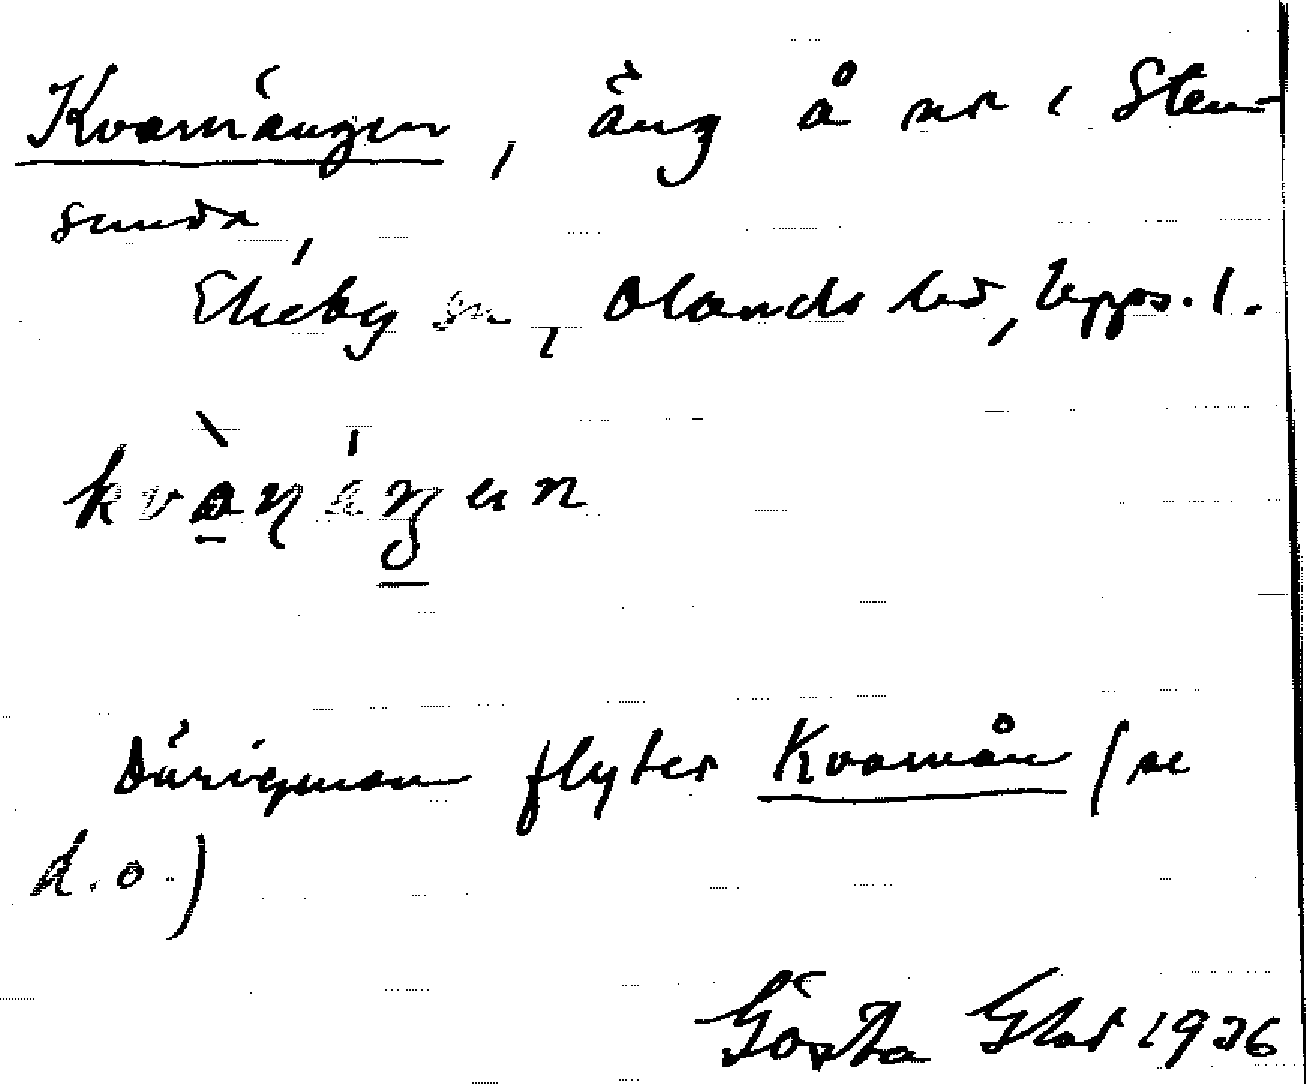 Kvarnängen, äng å nr 1 Sten-
sunda,
Ekeby sn, Olands hd, Upps. l.
Därigenom flyter Kvarnån (se
d. o.)
Gösta 1936